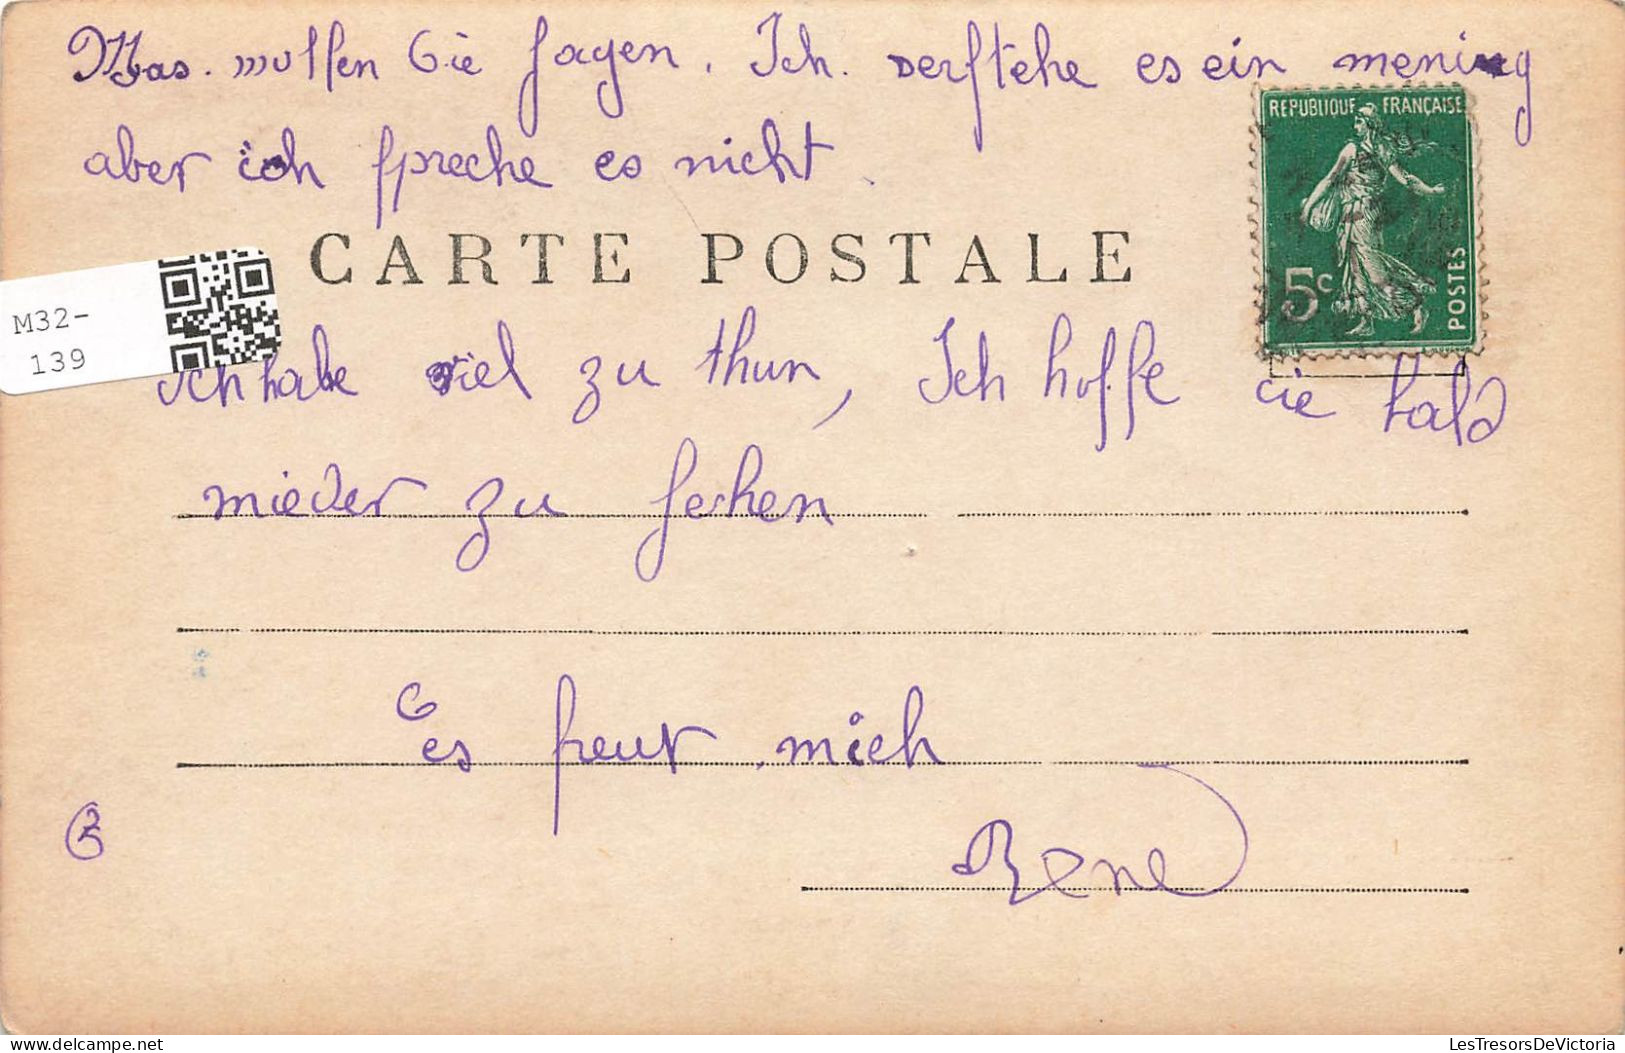 Was. wollen Sie sagen. Ich. verstehe es ein wening
aber ich spreche es nicht.
REPUBLIQUE FRANÇAISE
5c
POSTES
CARTE POSTALE
M32-
139
Ich habe viel zu thun, Ich hoffe sie bald
wieder zu sehen
Es freut mich
René
LesTresorsDeVictoria
delcampe.net